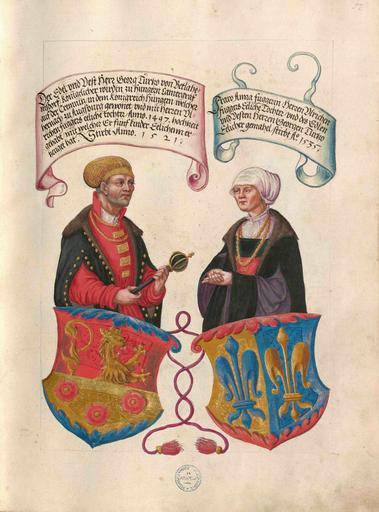 Der Edel und Vest Herr Georg Turzo von Betlahe-
mßdorf Königklicher würden zu Hungern Camergraf
auf der Cremnitz, in dem Königreich Hungern, welcher
auch zu Augspurg gewonet, und mit Herrn Ul-
richen Fuggers eeliche tochter, Anno. 1497. hochzeit
gehabt, mit welcher Er fünf kinder Eelichen er-
zeuget hat. Starbe Anno. 1521.
Fraw Anna Fuggerin Herren Ulrichen
Fuggers Eeliche Tochter und des Edlen
und Vesten Herren Georgen Turzo
Eelicher gemahel, starbe Ao. 1535.